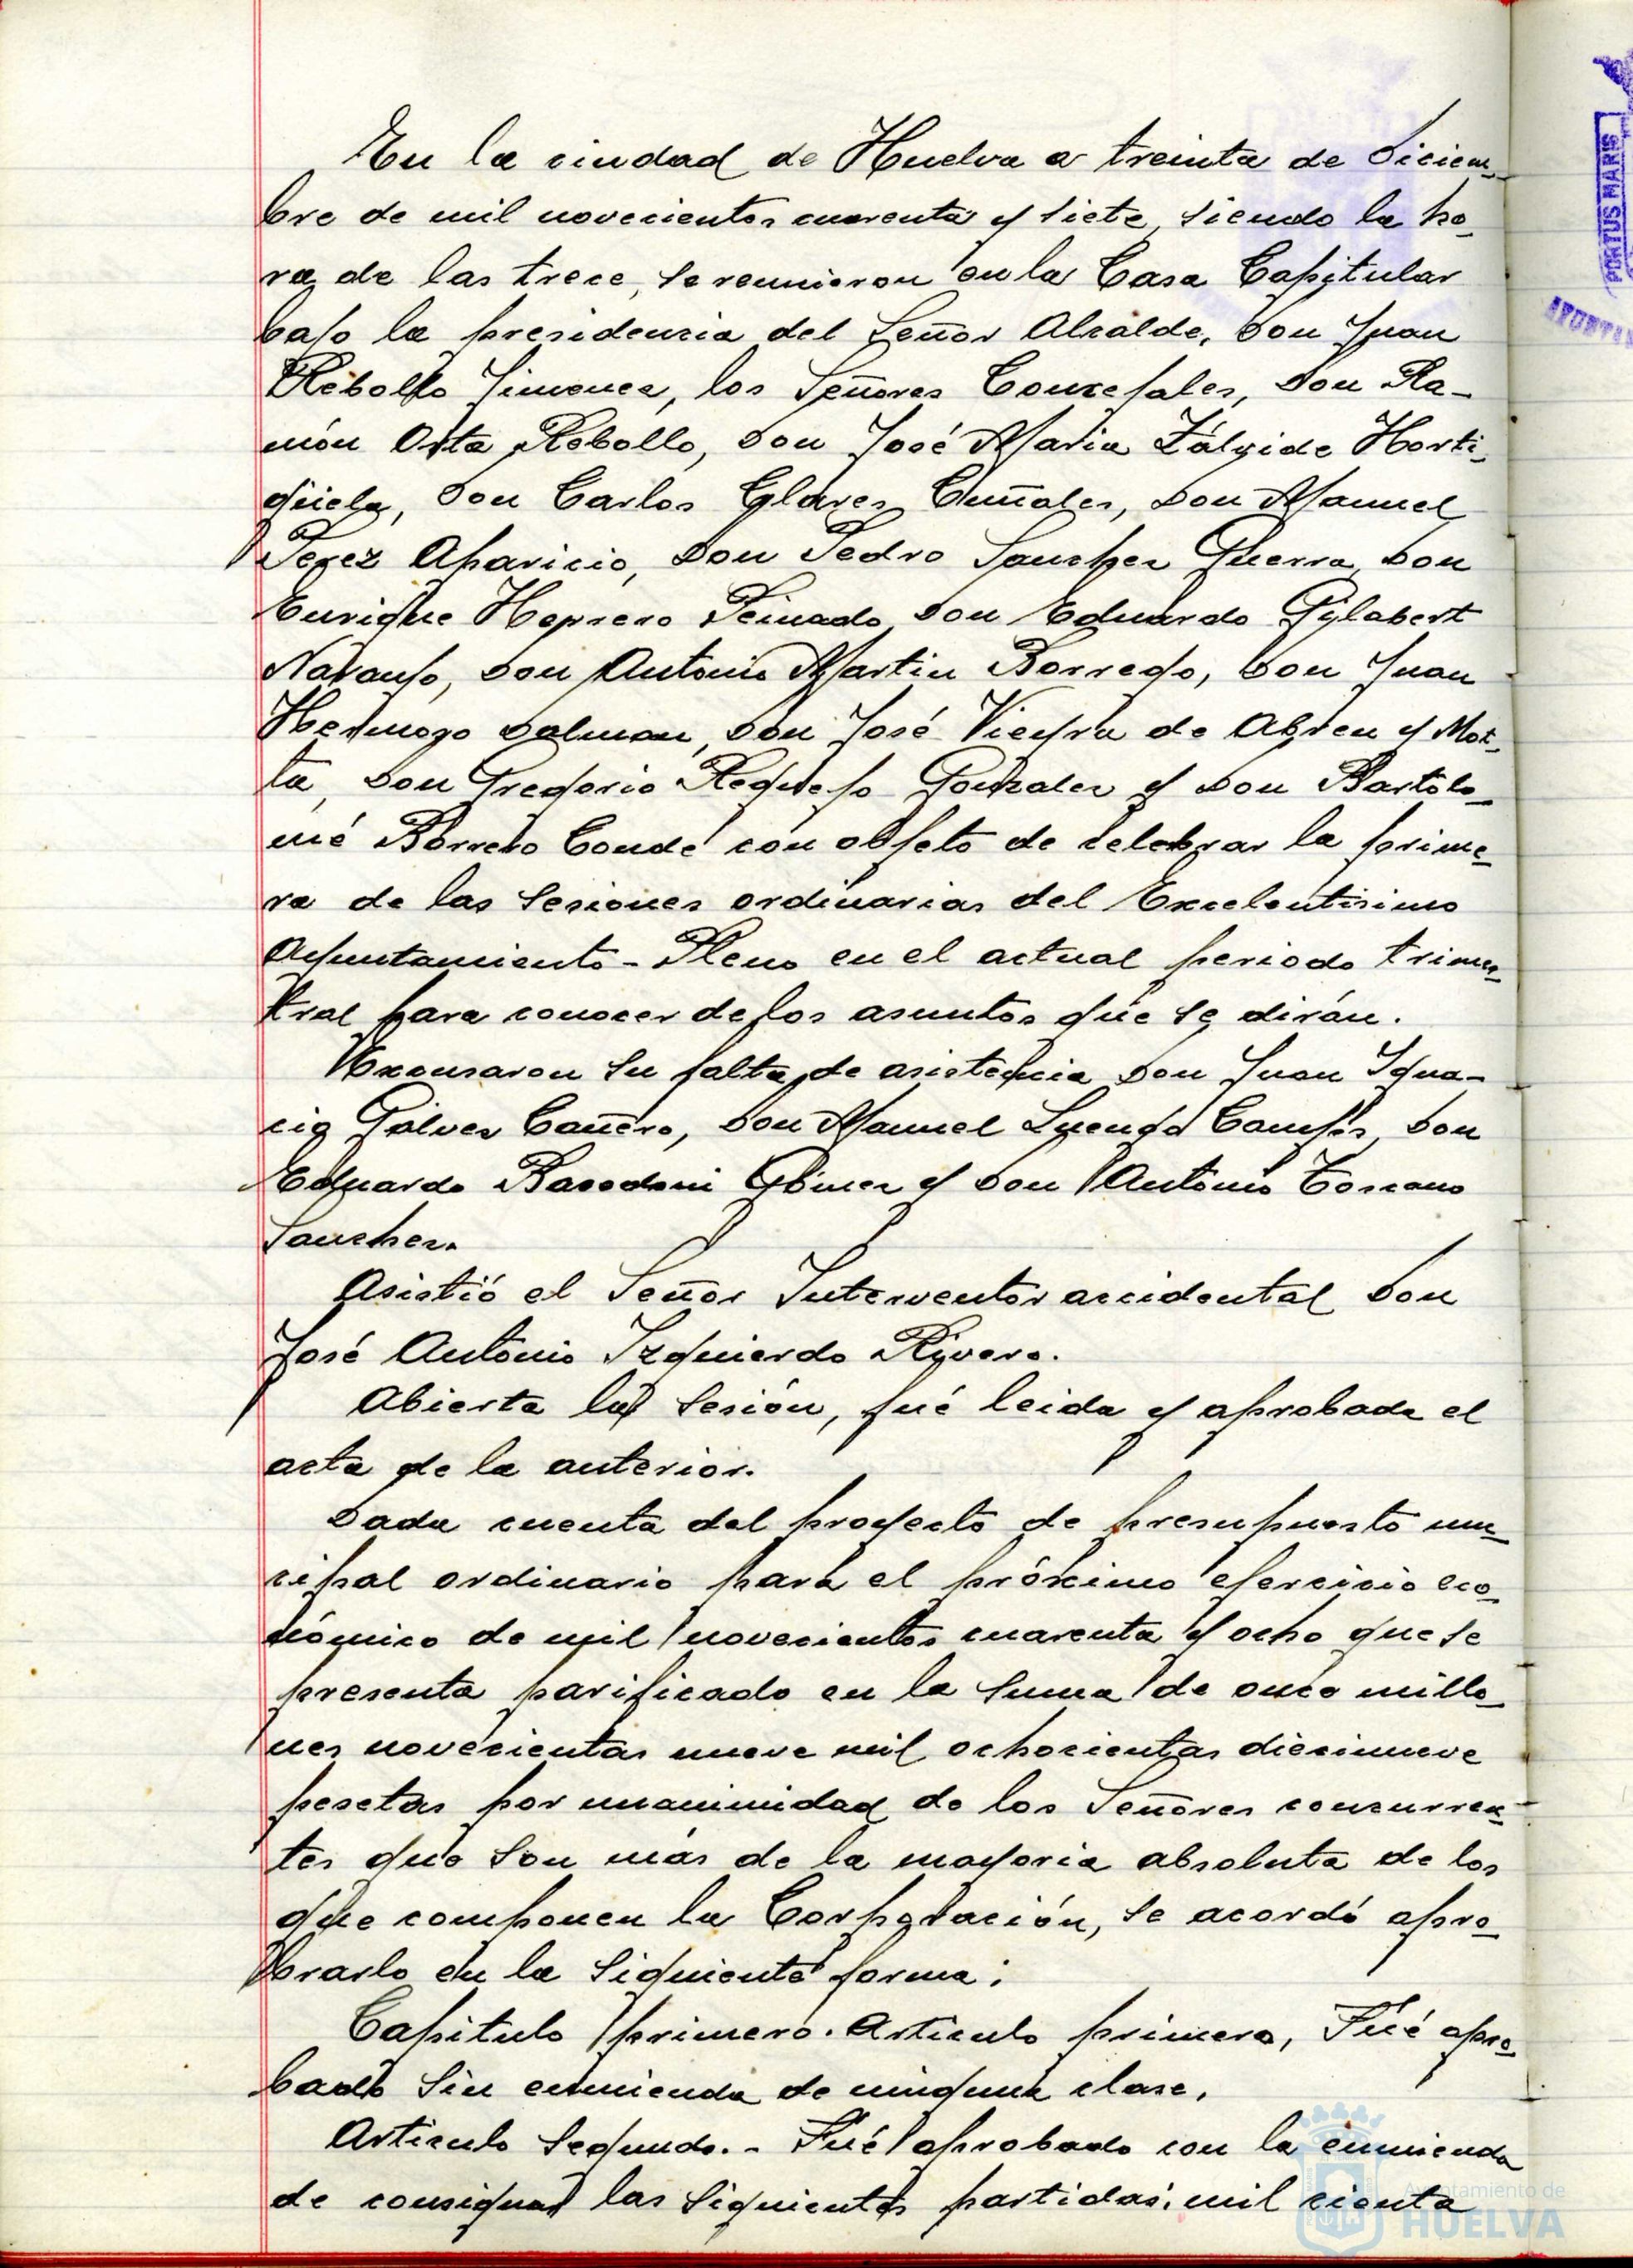 En la ciudad de Huelva a treinta de Diciem-
bre de mil novecientos cuarenta y siete, siendo la ho-
ra de las trece, se reunieron en la Casa Capitular
bajo la presidencia del Señor Alcalde, Don Juan
Rebollo Jimenez, los Señores Concejales, Don Ra-
món Orta Rebollo, Don José Maria Zálvide Horti-
güela, Don Carlos Glares Cuñales, Don Manuel
Perez Aparicio, Don Pedro Sanchez Guerra, Don
Enrique Herrero Peinado, Don Eduardo Gilabert
Naranjo, Don Antonio Martin Borrego, Don Juan
Hermoso Dolman, Don José Vieyra de Abreu y Mot-
ta, Don Gregorio Requejo Gonzalez y Don Bartolo-
mé Borrero Conde con objeto de celebrar la prime-
ra de las Sesiones ordinarias del Excelentisimo
Ayuntamiento-Pleno en el actual periodo trimes-
tral para conocer de los asuntos que se dirán.
Excusaron su falta de asistencia Don Juan Igna-
cio Gálvez Cañero, Don Manuel Luengo Campos, Don
Eduardo Bacedoni Gómez y Don Antonio Toscano
Sanchez.
Asistió el Señor Interventor accidental Don
José Antonio Izquierdo Rivero.
Abierta la Sesión, fué leida y aprobada el
acta de la anterior.
Dada cuenta del proyecto de presupuesto mu-
cipal ordinario para el próximo ejercicio eco-
nómico de mil novecientos cuarenta y ocho que se
presenta parificado en la suma de once millo-
nes novecientas nueve mil ochocientas diecinueve
pesetas por unanimidad de los Señores concurren-
tes que son más de la mayoria absoluta de los
que componen la Corporación, se acordó apro-
brarlo en la siguiente forma:
Capitulo primero. Articulo primero, Fué apro-
bado sin enmienda de ninguna clase.
Articulo Segundo.- Fué aprobado con la enmienda
de consignar las siguientes partidas: mil cienta
PORTUS MARIS
Ayuntamiento de
HUELVA